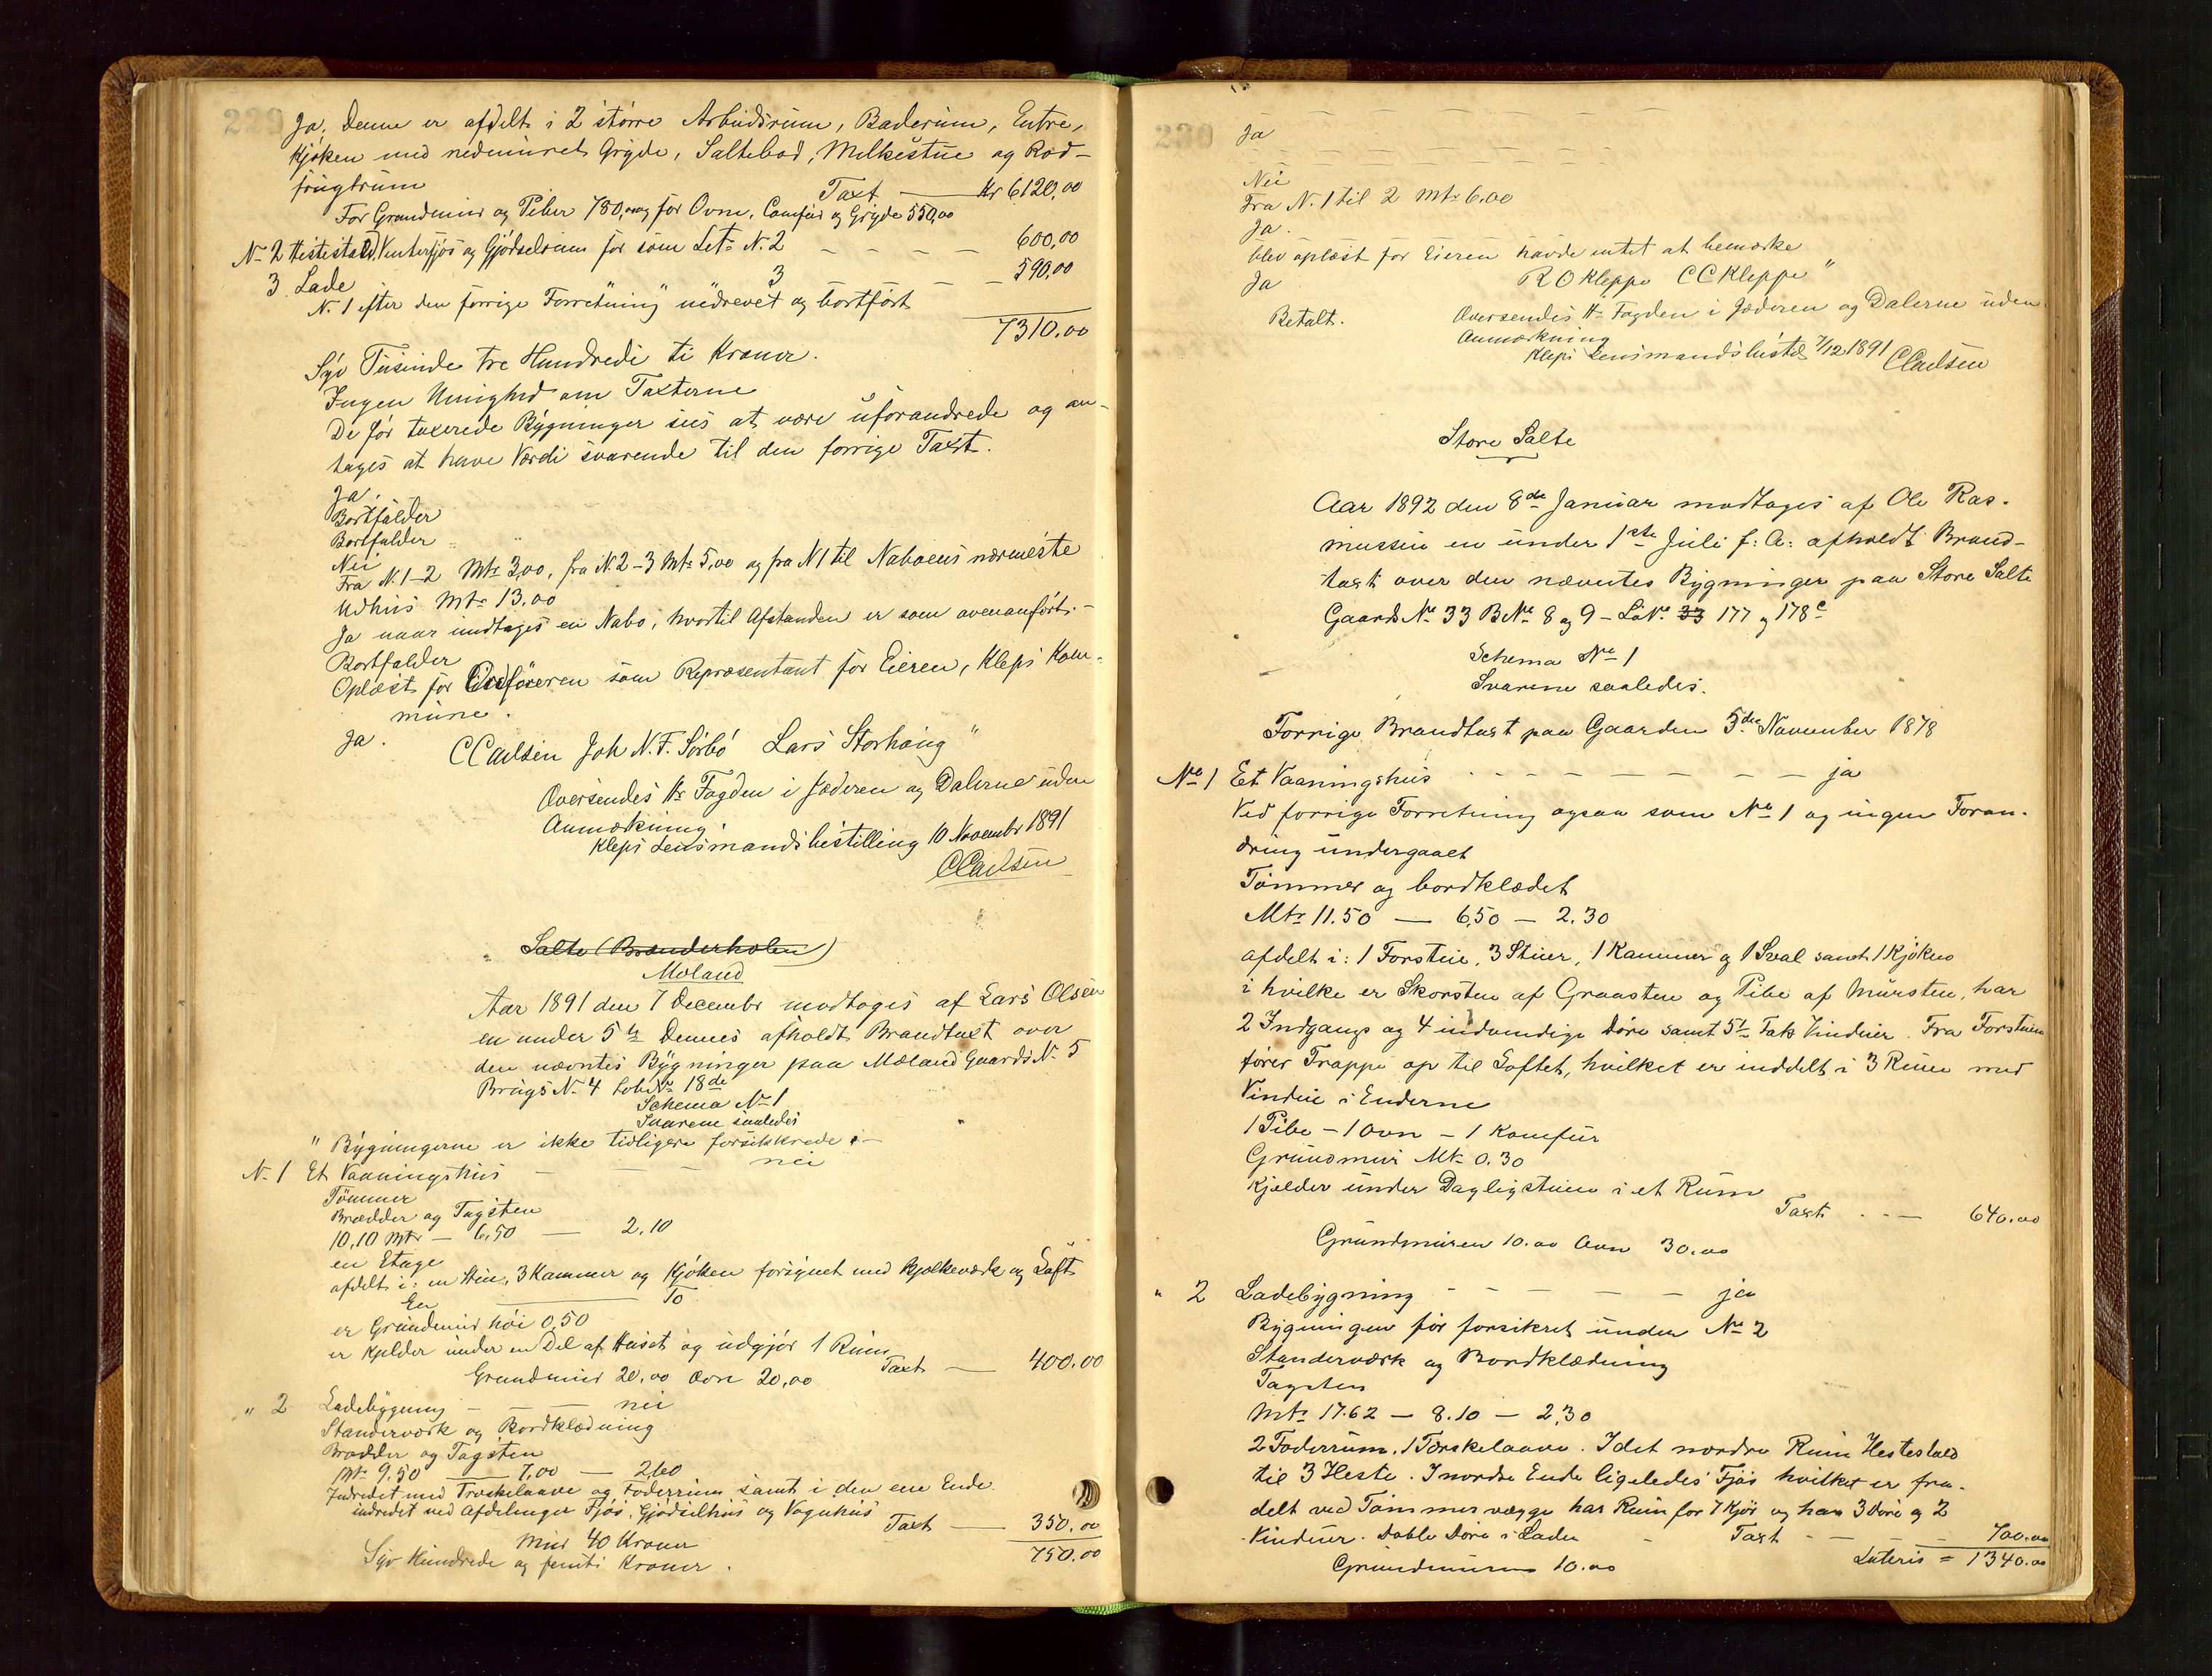 229
Ja, denne er afdelt i 2 större Arbeidsrum, Baderum, Entre,
Kjøken med nedmuret Gryde, Saltebod, Melkestue og Rod-
frugtrum Taxt — Kr 6120,00
For Grundmur og Piber 780,00 og for Ovne, Comfur og Gryde 550,00
No 2 Hestestald, Vinterfjös og Gjödselrum för som Lit. N. 2 — — — — 600,00
3 Lade 3 — — 590,00
N. 1 efter den forrige Forretning nedrevet og bortfört
7310.00
Syv Tusinde tre Hundrede ti Kroner.
Ingen Uenighed om Taxterne
De för taxerede Bygninger sees at være uforandrede og an-
tages at have Værdi svarende til den forrige Taxt.
Ja.
Bortfalder
Bortfalder
Nei
Fra N. 1-2 Mtr 3,00, fra N. 2-3 Mtr 5,00 og fra N 1 til Naboens nærmeste
Udhus Mtr 13.00
Ja naar undtages en Nabo, hvortil Afstanden er som ovenanfört.-
Bortfalder
Oplæst for Ordföreren som Repræsentant for Eieren, Kleps Kom-
mune.
Ja.
CCarlsen Joh N. F. Sørbö Lars Storhaug "
Oversendes Hr Fogden i Jæderen og Dalerne uden
Anmærkning.
Kleps Lensmandsbestilling 10 Novembr 1891
CCarlsen
Salte (Brænderholen)
Moland
Aar 1891 den 7 Decembr modtoges af Lars Olsen
en under 5te Dennes afholdt Brandtaxt over
den nævntes Bygninger paa Mæland Gaards N. 5
Brugs N. 4 Lob No 18 de
Schema No 1
Svarene saaledes
" Bygningerne er ikke tidligere forsikkrede. -
N. 1 Et Vaaningshus — — — nei
Tömmer
Brædder og Tagsten
10,10 Mtr — 6,50 — 2.10
en Etage
afdelt i: en Stue, 3 Kammer og Kjöken forsynet med Bjelkeværk og Loft
En — To
er Grundmur höi 0,50
er Kjelder under en Del af Huset og udgjör 1 Rum
Taxt — 400.00
Grundmur 20,00 Ovn 20,00
" 2 Ladebygning — — — nei
Standerværk og Bordklædning
Brædder og Tagsten
Mtr 9.50 — 7,00 — 2,60
Indredet med Træskelaave og Foderrum samt i den ene Ende
indredet med Afdelinger Fjös, Gjödselhus og Vognhus
Taxt — 350.00
Mur 40 Kroner
750.00
Syv Hundrede og femti Kroner.
230
Ja
Nei
Fra N. 1 til 2 Mtr 6.00
Ja.
blev oplæst for Eieren havde intet at bemærke
Ja R O Kleppe C C Kleppe "
Betalt.
Oversendes Hr Fogden i Jæderen og Dalerne uden
Anmærkning
Kleps Lensmandsbestill 7/12 1891 CCarlsen
Store Salte
Aar 1892 den 8de Januar modtoges af Ole Ras-
mussen en under 1ste Juli f. A. afholdt Brand-
taxt over den nævntes Bygninger paa Store Salte
Gaards No 33 B No 8 og 9 – L No 33 177 og 178c
Schema No 1
Svarene saaledes.
Forrige Brandtaxt paa Gaarden 5de November 1878
No 1 Et Vaaningshus - - - — — — — — ja
Ved forrige Forretning ogsaa som No 1 og ingen Foran-
dring undergaaet
Tömmer og bordklædet
Mtr 11.50 — 6,50 — 2.30
afdelt i: 1 Forstue, 3 Stuer, 1 Kammer og 1 Sval samt 1 Kjöken
i hvilke er Skorsten af Graasten og Pibe af Mursten, har
2 Indgangs og 4 indvendige Döre samt 5 Fak Vinduer. Fra Forstuen
förer Trappe op til Loftet, hvilket er inddelt i 3 Rum med
Vindue i Enderne
1 Pibe – 1 Ovn – 1 Komfur
Grundmur Mtr 0.30
Kjelder under Dagligstuen i et Rum
Taxt — 640.00
Grundmuren 10.00 Ovn 30.00
" 2 Ladebygning - - — — — — ja
Bygningen för forsikret under No 2
Standerværk og Bordklædning
Tagsten
Mtr 17.62 — 8.10 — 2,30
2 Foderrum, 1 Tærskelaave. I det nordre Rum Hestestald
til 3 Heste. I nordre Ende ligeledes Fjös hvilket er fra-
delt ved Tömmervægge har Rum for 7 Kjör og har 3 Döre og 2
Vinduer. Doble Döre i Laden - Taxt - — — 700.00
Grundmuren 10.00
Lateris = 1340.00